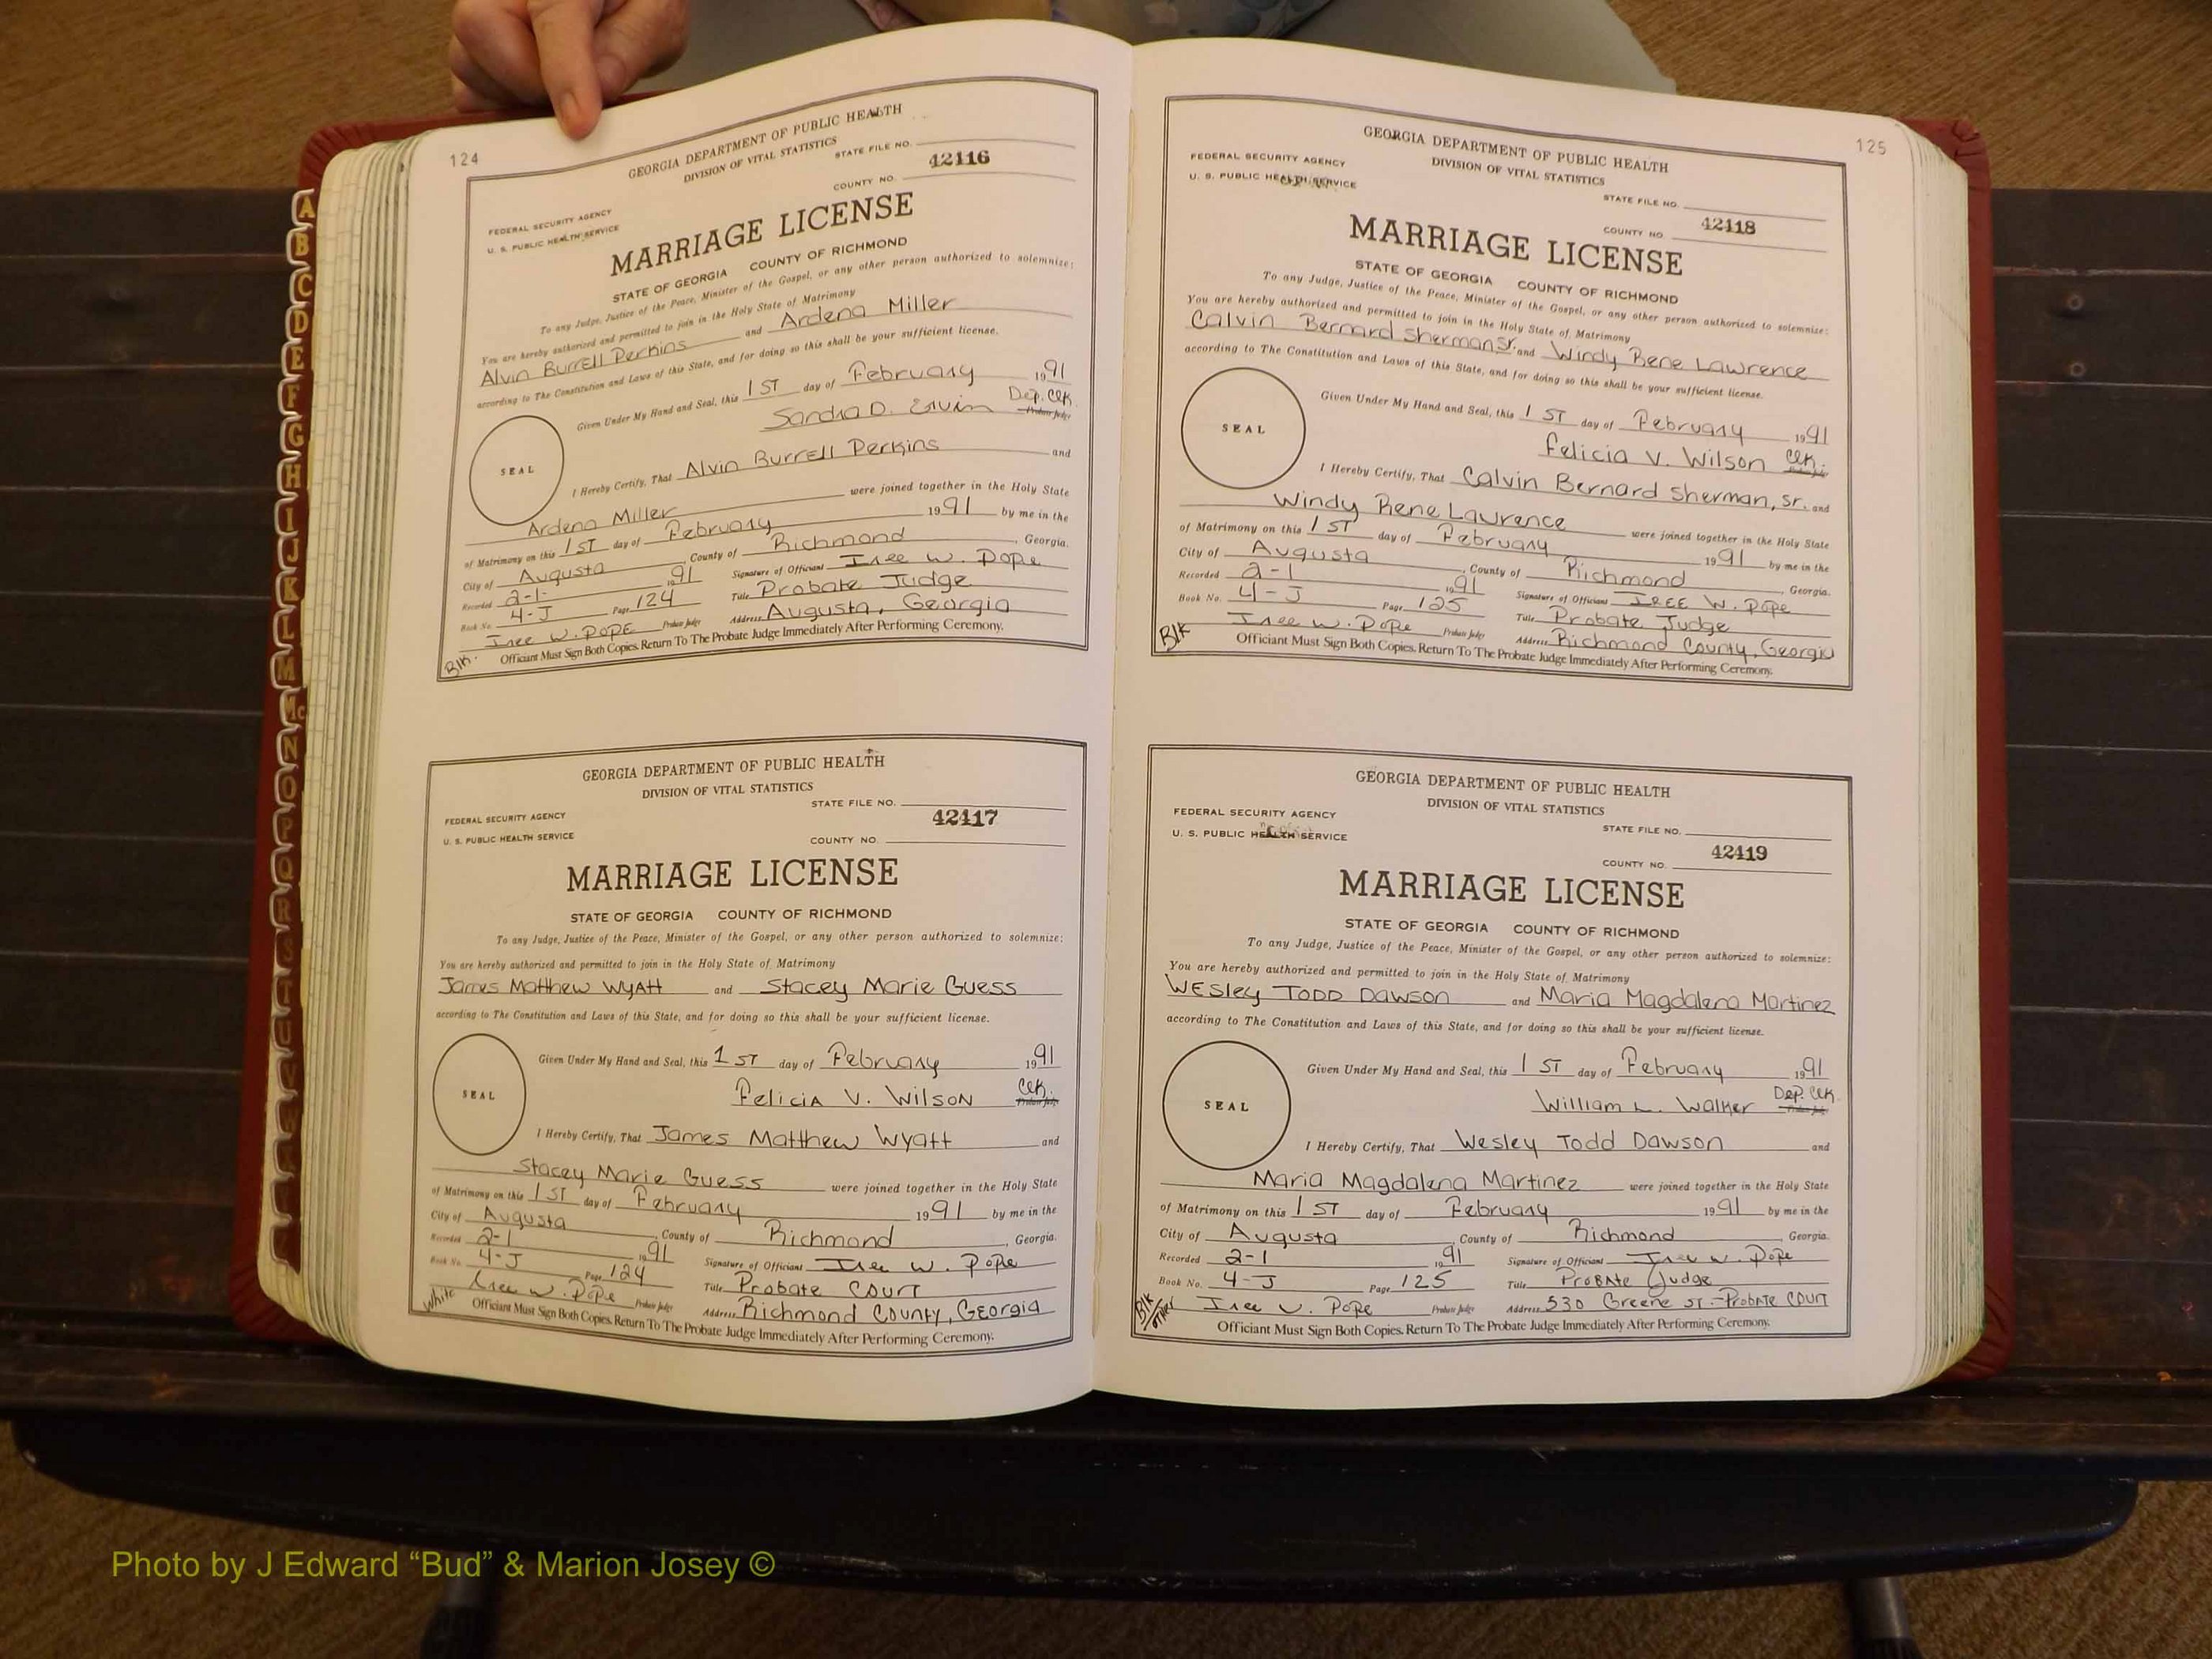 124
GEORGIA DEPARTMENT OF PUBLIC HEALTH
DIVISION OF VITAL STATISTICS
STATE FILE NO.
42116
COUNTY NO.
FEDERAL SECURITY AGENCY
U. S. PUBLIC HEALTH SERVICE
MARRIAGE LICENSE
STATE OF GEORGIA COUNTY OF RICHMOND
To any Judge, Justice of the Peace, Minister of the Gospel, or any other person authorized to solemnize:
You are hereby authorized and permitted to join in the Holy State of Matrimony
Alvin Burrell Perkins and Ardena Miller
according to The Constitution and Laws of this State, and for doing so this shall be your sufficient license.
Given Under My Hand and Seal, this 1 ST day of February 1991
Sandra D. Ervin Dep. Clk. Probate Judge
SEAL
I Hereby Certify, That Alvin Burrell Perkins and
Ardena Miller were joined together in the Holy State
of Matrimony on this 1 ST day of February 1991 by me in the
City of Augusta County of Richmond, Georgia.
Recorded 2-1- 1991 Signature of Officiant Isee W. Pope
Book No. 4-J Page 124 Title Probate Judge
Isee W. Pope Probate Judge Address Augusta, Georgia
Blk. Officiant Must Sign Both Copies. Return To The Probate Judge Immediately After Performing Ceremony.
GEORGIA DEPARTMENT OF PUBLIC HEALTH
DIVISION OF VITAL STATISTICS
STATE FILE NO.
FEDERAL SECURITY AGENCY
42117
U. S. PUBLIC HEALTH SERVICE
COUNTY NO.
MARRIAGE LICENSE
STATE OF GEORGIA COUNTY OF RICHMOND
To any Judge, Justice of the Peace, Minister of the Gospel, or any other person authorized to solemnize:
You are hereby authorized and permitted to join in the Holy State of Matrimony
James Matthew Wyatt and Stacey Marie Guess
according to The Constitution and Laws of this State, and for doing so this shall be your sufficient license.
Given Under My Hand and Seal, this 1 ST day of February 1991
Felicia V. Wilson Clk. Probate Judge
SEAL
I Hereby Certify, That James Matthew Wyatt and
Stacey Marie Guess were joined together in the Holy State
of Matrimony on this 1 ST day of February 1991 by me in the
City of Augusta, County of Richmond, Georgia.
Recorded 2-1 1991 Signature of Officiant Isee W. Pope
Book No. 4-J Page 124 Title Probate Court
Isee W. Pope Probate Judge Address Richmond County, Georgia
White Officiant Must Sign Both Copies. Return To The Probate Judge Immediately After Performing Ceremony.
125
GEORGIA DEPARTMENT OF PUBLIC HEALTH
FEDERAL SECURITY AGENCY
DIVISION OF VITAL STATISTICS
U. S. PUBLIC HEALTH SERVICE
STATE FILE NO.
42118
COUNTY NO.
MARRIAGE LICENSE
STATE OF GEORGIA COUNTY OF RICHMOND
To any Judge, Justice of the Peace, Minister of the Gospel, or any other person authorized to solemnize:
You are hereby authorized and permitted to join in the Holy State of Matrimony
Calvin Bernard Sherman Sr. and Windy Rene Lawrence
according to The Constitution and Laws of this State, and for doing so this shall be your sufficient license.
Given Under My Hand and Seal, this 1 ST day of February 1991
Felicia V. Wilson Clk.
SEAL
I Hereby Certify, That Calvin Bernard Sherman, Sr. and
Windy Rene Lawrence were joined together in the Holy State
of Matrimony on this 1 ST day of February 1991 by me in the
City of Augusta, County of Richmond, Georgia.
Recorded 2-1 1991 Signature of Officiant Isee W. Pope
Book No. 4-J Page 125 Title Probate Judge
Isee W. Pope Probate Judge Address Richmond County, Georgia
Blk Officiant Must Sign Both Copies. Return To The Probate Judge Immediately After Performing Ceremony.
GEORGIA DEPARTMENT OF PUBLIC HEALTH
DIVISION OF VITAL STATISTICS
FEDERAL SECURITY AGENCY
STATE FILE NO.
U. S. PUBLIC HEALTH SERVICE
42119
COUNTY NO.
MARRIAGE LICENSE
STATE OF GEORGIA COUNTY OF RICHMOND
To any Judge, Justice of the Peace, Minister of the Gospel, or any other person authorized to solemnize:
You are hereby authorized and permitted to join in the Holy State of Matrimony
Wesley Todd Dawson and Maria Magdalena Martinez
according to The Constitution and Laws of this State, and for doing so this shall be your sufficient license.
Given Under My Hand and Seal, this 1 ST day of February 1991
William L. Walker Dep. Clk. Probate Judge
SEAL
I Hereby Certify, That Wesley Todd Dawson and
Maria Magdalena Martinez were joined together in the Holy State
of Matrimony on this 1 ST day of February 1991 by me in the
City of Augusta, County of Richmond, Georgia.
Recorded 2-1 1991 Signature of Officiant Isee W. Pope
Book No. 4-J Page 125 Title Probate Judge
Isee W. Pope Probate Judge Address 530 Greene St.-Probate Court
Blk/other Officiant Must Sign Both Copies. Return To The Probate Judge Immediately After Performing Ceremony.
A
B
C
D
E
F
G
H
I
J
K
L
M
Mc
N
O
P
Q
R
S
T
U
Photo by J Edward “Bud” & Marion Josey ©